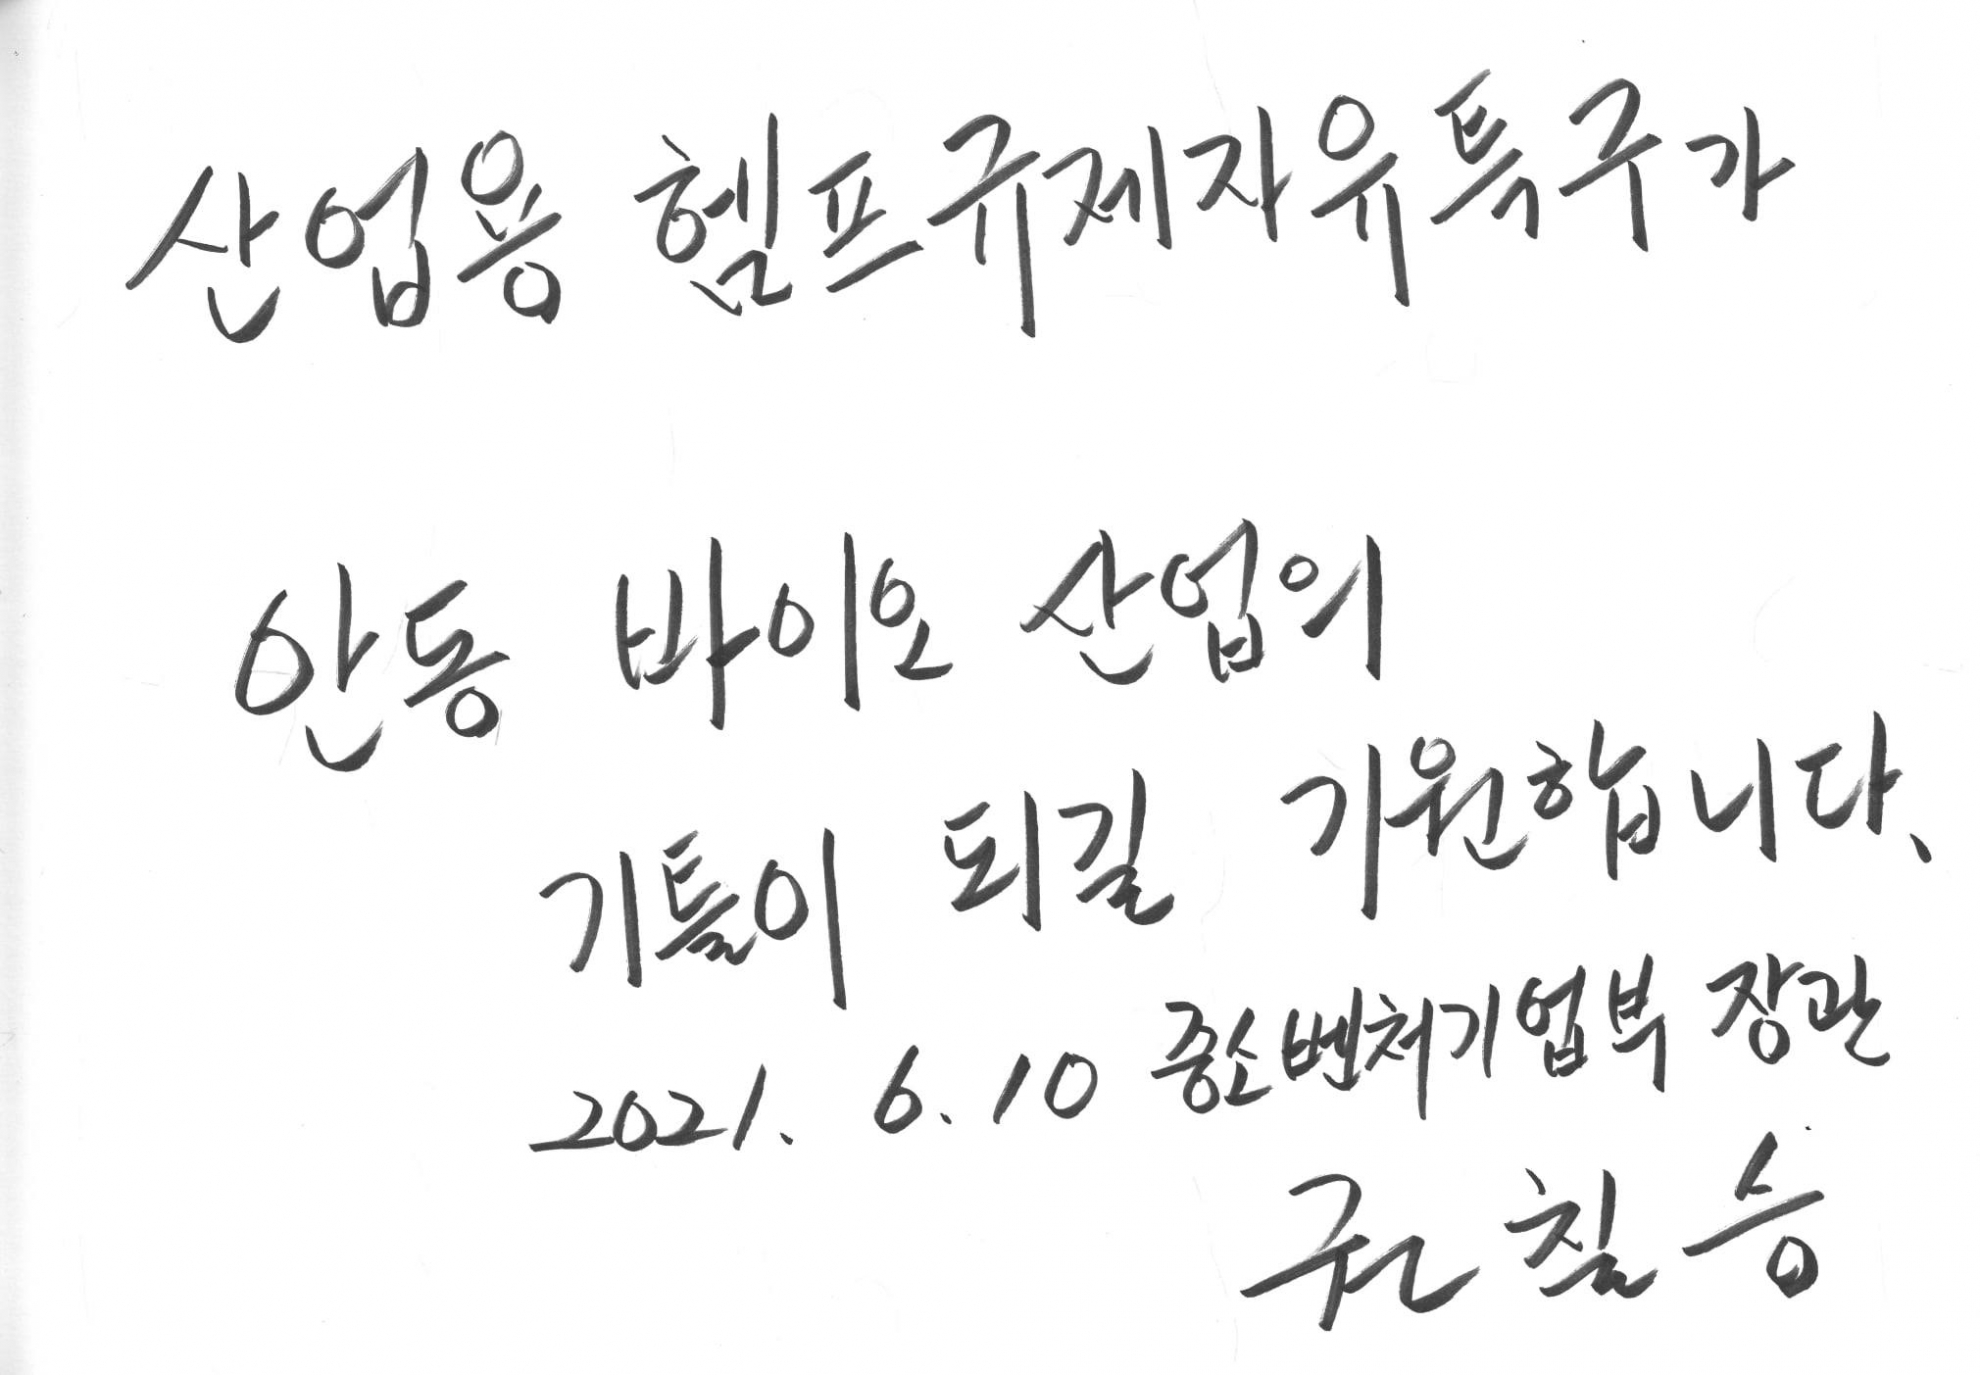 산업용 헴프규제자유특구가
안동 바이오 산업의
기틀이 되길 기원합니다.
2021. 6. 10 중소벤처기업부 장관
권칠승